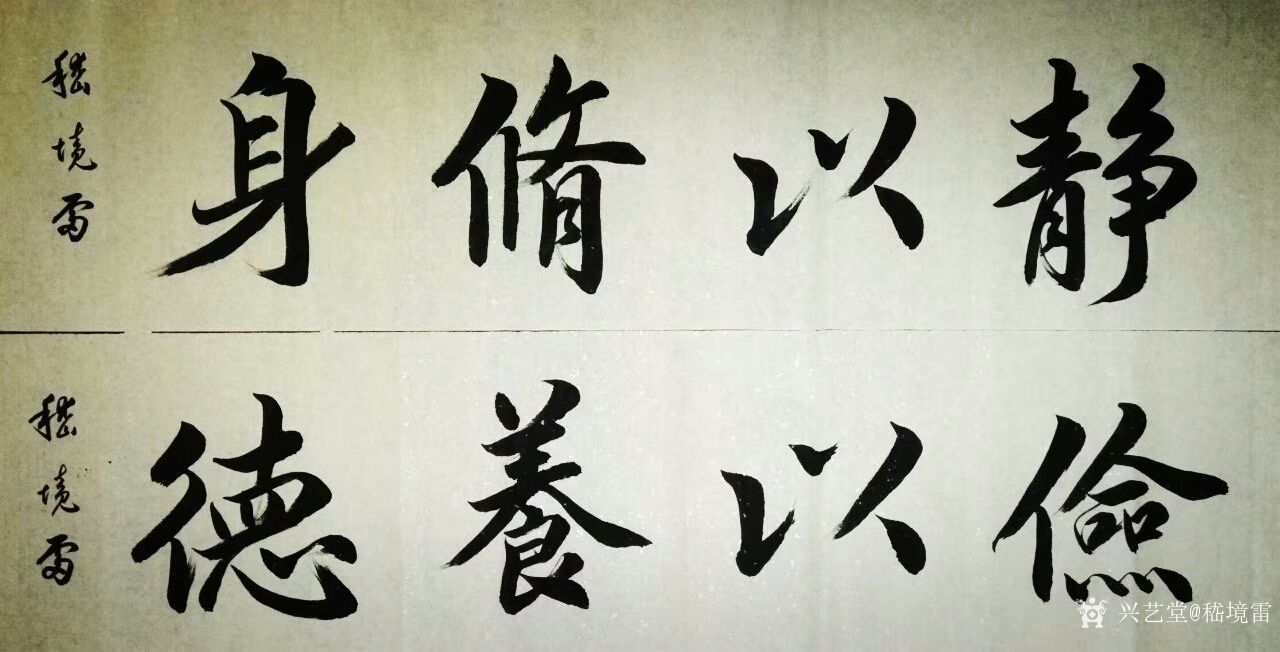 静以脩身
嵇境雷
儉以養德
嵇境雷
兴艺堂@嵇境雷